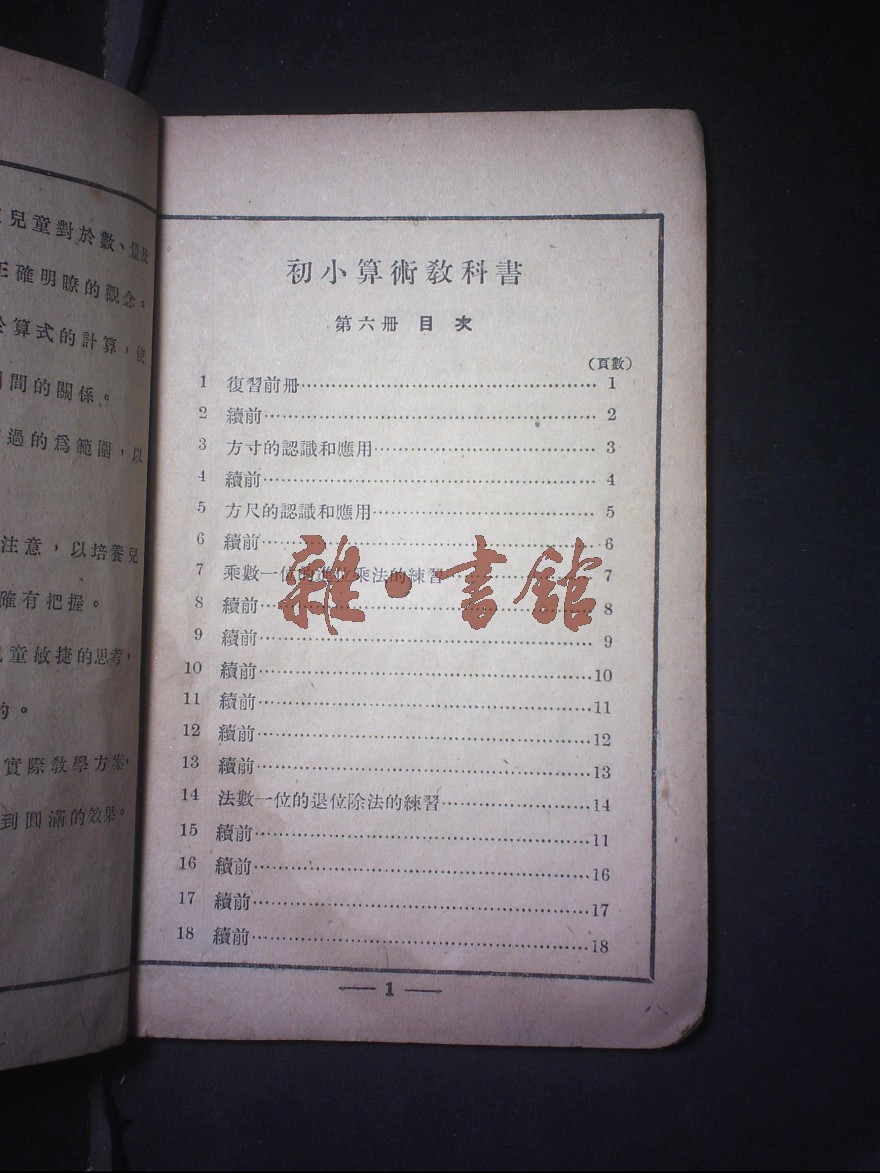 兒童對於數、量及
正確明瞭的觀念。
算式的計算，使
間的關係。
過的爲範圍，以
注意，以培養兒
確有把握。
童敏捷的思考，
的。
實際敎學方案，
到圓滿的效果。
初小算術敎科書
第六册 目次
(頁數)
1 復習前册 1
2 續前 2
3 方寸的認識和應用 3
4 續前 4
5 方尺的認識和應用 5
6 續前 6
7 乘數一位的進位乘法的練習 7
8 續前 8
9 續前 9
10 續前 10
11 續前 11
12 續前 12
13 續前 13
14 法數一位的退位除法的練習 14
15 續前 11
16 續前 16
17 續前 17
18 續前 18
— 1 —
雜·書館